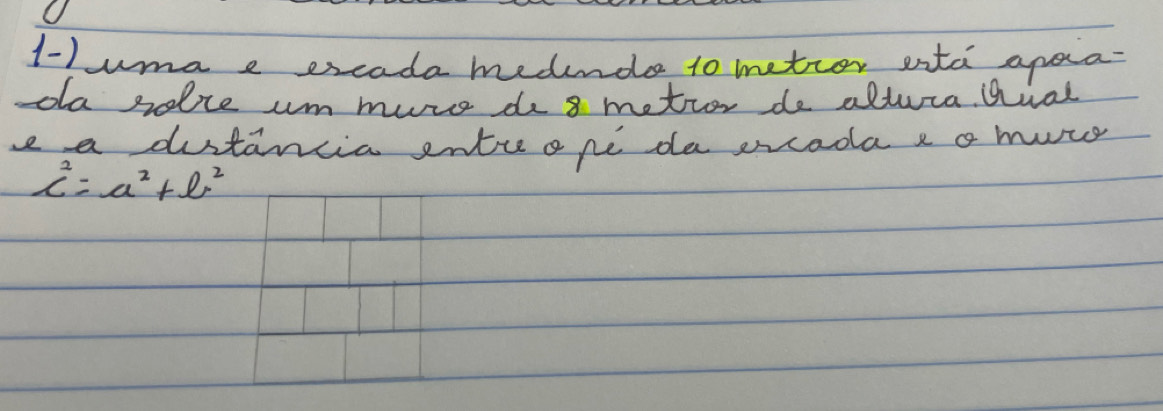 1-) uma e escada medindo 10 metros está apoia-
da sobre um muro de 8 metros de altura. Qual
e a distância entre o pé da escada e o muro
c² = a² + b²